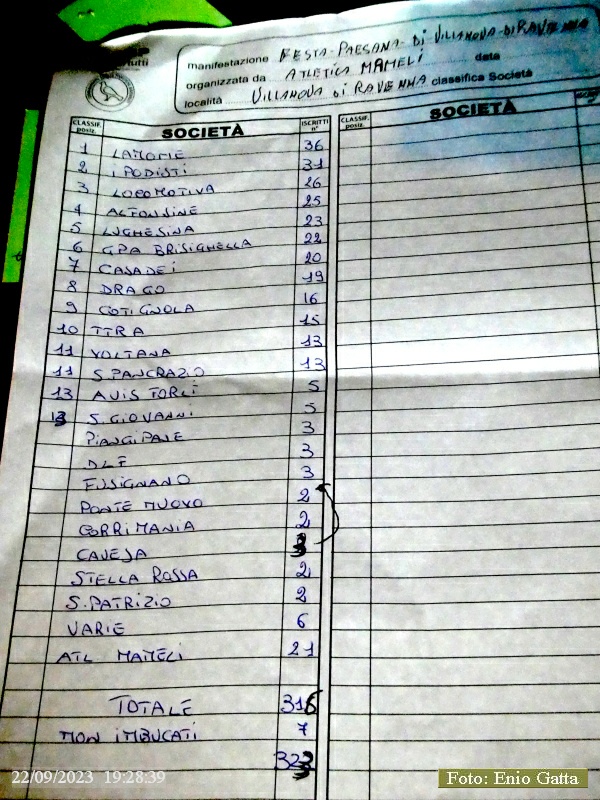 tutti
manifestazione FESTA-PAESANA-DI VILLANOVA-DI RAVENNA
organizzata da ATLETICA MAMELI data
località VILLANOVA DI RAVENNA classifica Società
CLASSIF. posiz. SOCIETÀ ISCRITTI n° CLASSIF. posiz. SOCIETÀ
1 LAMONE 36
2 I PODISTI 31
3 LOCOMOTIVA 26
4 ALFONSINE 25
5 LUGHESINA 23
6 GPA BRISIGHELLA 22
7 CASADEI 20
8 DRAGO 19
9 COTIGNOLA 16
10 TTRA 15
11 VOLTANA 13
11 S.PANCRAZIO 13
13 AVIS FORLÌ 5
13 S.GIOVANNI 5
PIANGIPANE 3
DLF 3
FUSIGNANO 3
PONTE NUOVO 2
CORRIMANIA 2
CAVEJA 3
STELLA ROSSA 2
S.PATRIZIO 2
VARIE 6
ATL MAMELI 21
TOTALE 316
NON IMBUCATI 7
323
22/09/2023 19:28:39
Foto: Enio Gatta